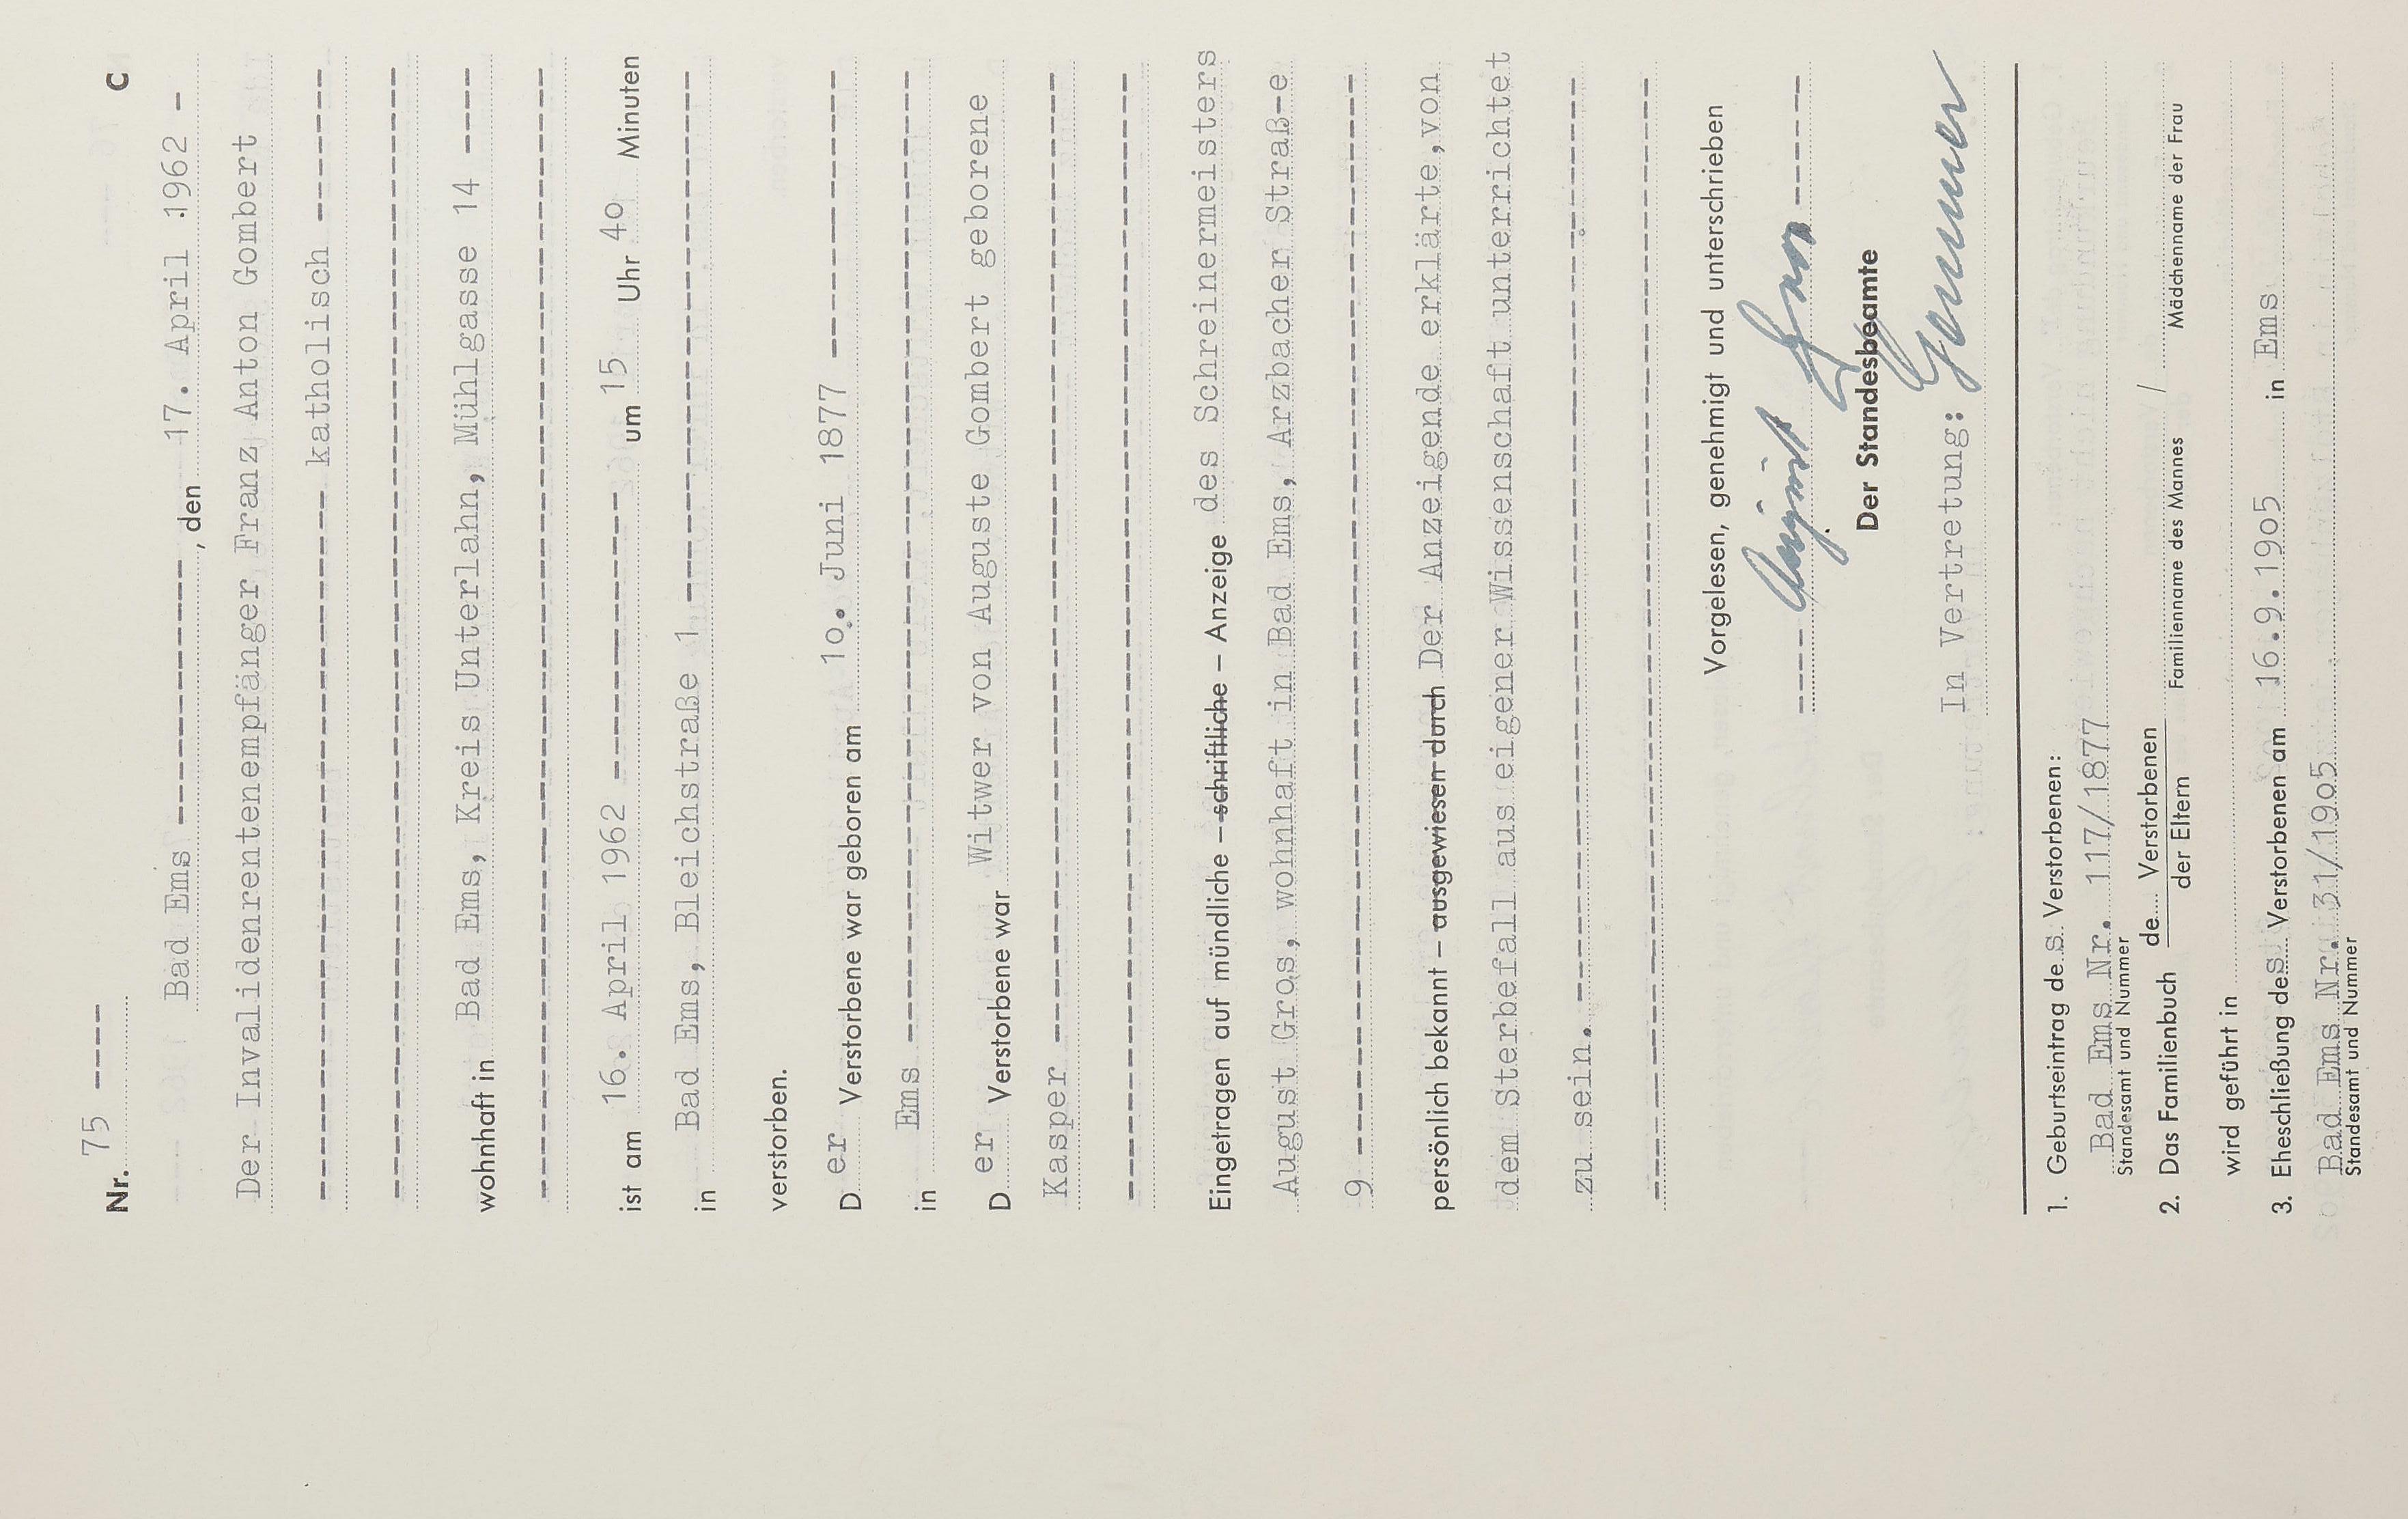 Nr. 75 ---- C
Bad Ems --------------, den 17. April 1962 -
Der Invalidenrentenempfänger Franz Anton Gombert
---------------------- katholisch --------
----------------------------------------
wohnhaft in Bad Ems, Kreis Unterlahn, Mühlgasse 14 ----
----------------------------------------
ist am 16. April 1962 ------------ um 15 Uhr 4o Minuten
in Bad Ems, Bleichstraße 1 ----------------------
verstorben.
Der Verstorbene war geboren am 1o. Juni 1877 ------------
in Ems ----------------------------------------
Der Verstorbene war Witwer von Auguste Gombert geborene
Kasper ----------------------------------------
----------------------------------------
Eingetragen auf mündliche – schriftliche – Anzeige des Schreinermeisters
August Gros, wohnhaft in Bad Ems, Arzbacher Straß-e
9 ----------------------------------------
persönlich bekannt – ausgewiesen durch Der Anzeigende erklärte, von
dem Sterbefall aus eigener Wissenschaft unterrichtet
zu sein. ----------------------------------------
----------------------------------------
Vorgelesen, genehmigt und unterschrieben
---- August Gros ------
Der Standesbeamte
In Vertretung:
1. Geburtseintrag des Verstorbenen:
Bad Ems Nr. 117/1877
Standesamt und Nummer
2. Das Familienbuch de.... Verstorbenen / der Eltern /
Familienname des Mannes Mädchenname der Frau
wird geführt in
3. Eheschließung des Verstorbenen am 16.9.19o5 in Ems
Bad Ems Nr. 31/19o5
Standesamt und Nummer